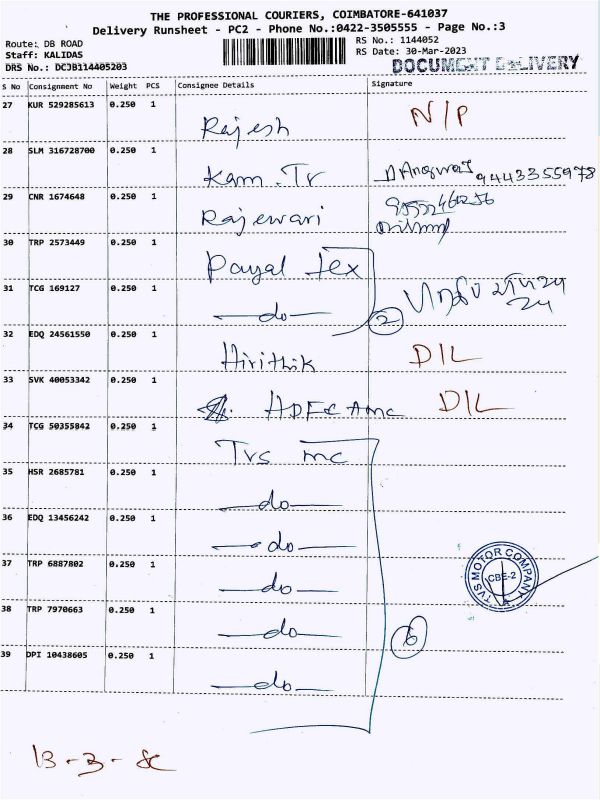 THE PROFESSIONAL COURIERS, COIMBATORE-641037
Delivery Runsheet - PC2 - Phone No.:0422-3505555 - Page No.:3
Route: DB ROAD
RS No.: 1144052
Staff: KALIDAS
RS Date: 30-Mar-2023
DRS No.: DCJB114405203
DOCUMENT DELIVERY
S No Consignment No Weight PCS Consignee Details Signature
27 KUR 529285613 0.250 1 Rajesh N/P
28 SLM 316728700 0.250 1 Kam. Tr 9443355978
29 CNR 1674648 0.250 1 Rajewari
30 TRP 2573449 0.250 1 Payal Tex
31 TCG 169127 0.250 1 —do— 2
32 EDQ 24561550 0.250 1 Hirithik D/L
33 SVK 40053342 0.250 1 HDFC AMC D/L
34 TCG 50355842 0.250 1 Tvs mc
35 HSR 2685781 0.250 1 —do—
36 EDQ 13456242 0.250 1 —do—
37 TRP 6887802 0.250 1 —do—
TVS MOTOR COMPANY
CBE-2
38 TRP 7970663 0.250 1 —do— 6
39 DPI 10438605 0.250 1 —do—
13 - 3 -